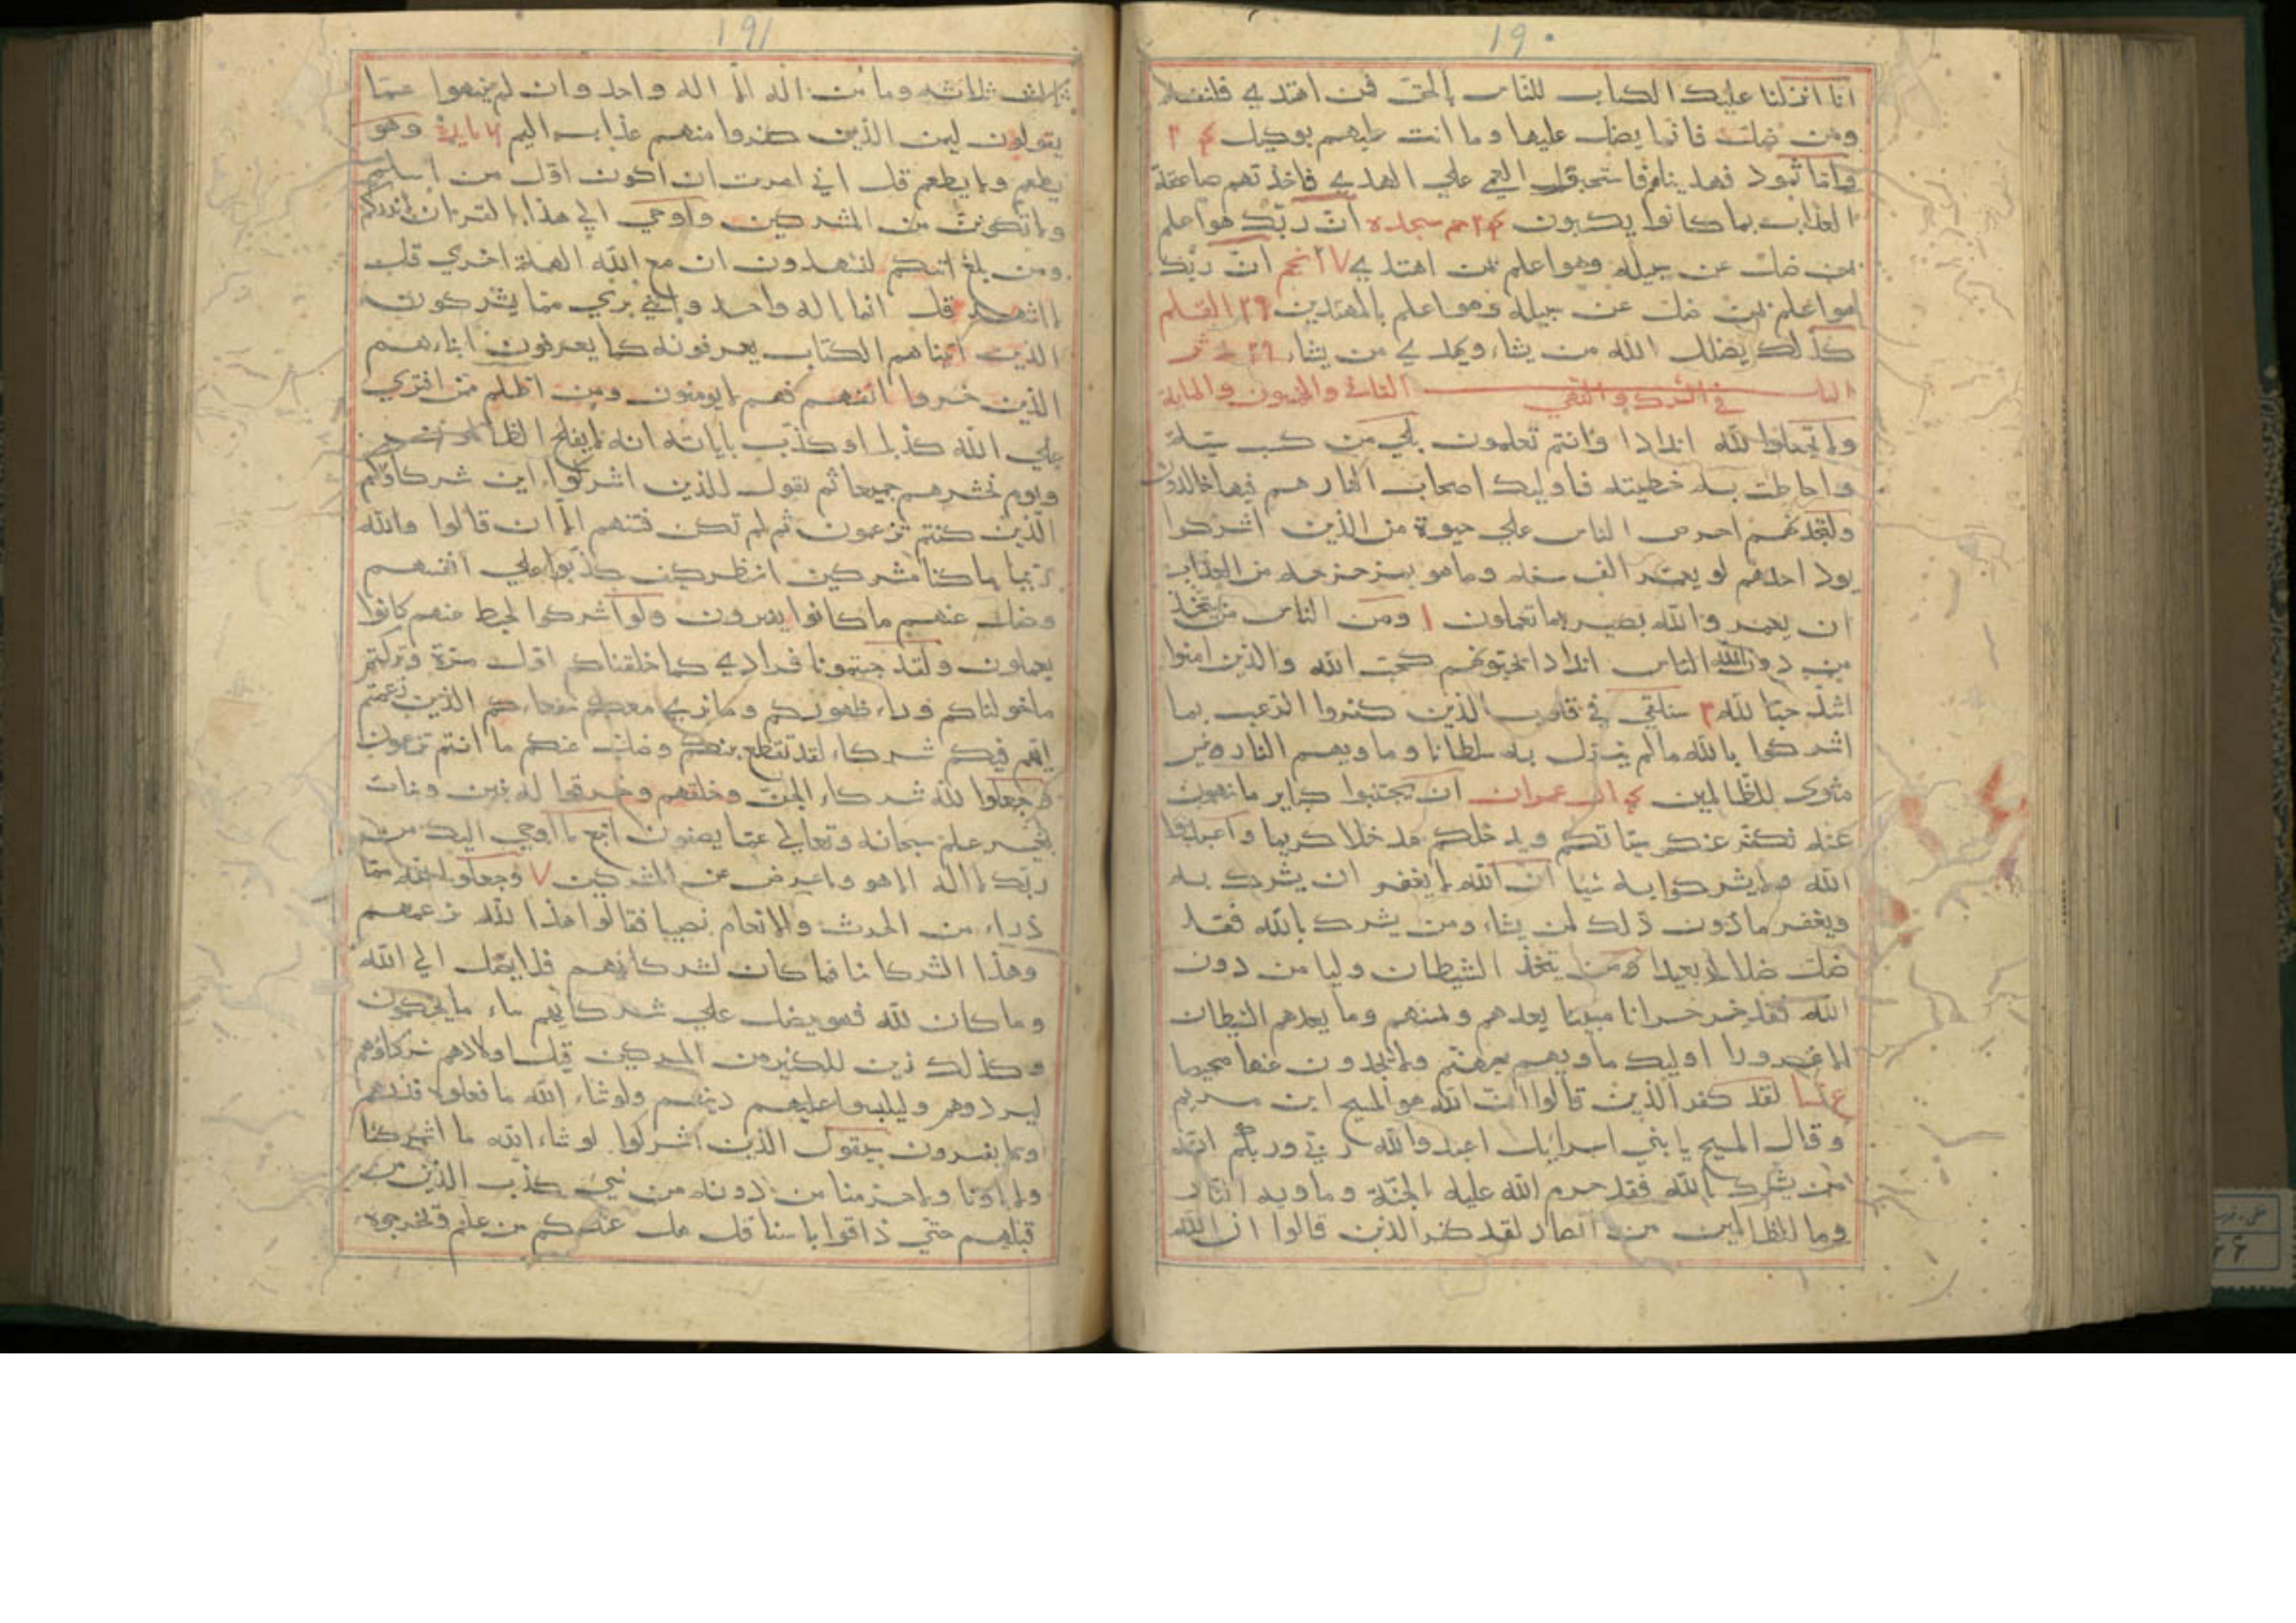 ١٩٠
انا انزلنا عليك الكتاب للناس بالحق فمن اهتدي فلنفسه
ومن ضل فانما يضل عليها وما انت عليهم بوكيل
واما ثمود فهديناهم فاستحبوا العمي علي الهدي فاخذتهم صاعقة
العذاب بما كانوا يكسبون حم سجده ان ربك هو اعلم
بمن ضل عن سبيله وهو اعلم بمن اهتدي ٢٧ نجم ان ربك
هو اعلم بمن ضل عن سبيله وهو اعلم بالمهتدين ٢٩ القلم
كذلك يضل الله من يشاء ويهدي من يشاء ٢٩
الباب الثاني والخمسون والماية
في الشرك و
ولا تجعلوا لله اندادا وانتم تعلمون بلي من كسب سيئة
واحاطت به خطيئته فاوليك اصحاب النار هم فيها خالدون
ولتجدنهم احرص الناس علي حيوة من الذين اشركوا
يود احدهم لو يعمر الف سنه وما هو بمزحزحه من العذاب
ان يعمر والله بصير بما تعملون ١ ومن الناس من يتخذ
من دون الله الناس اندادا يحبونهم كحب الله والذين امنوا
اشد حبا لله ٢ سنلقي في قلوب الذين كفروا الرعب بما
اشركوا بالله ما لم ينزل به سلطانا وماويهم النار وبئس
مثوي للظالمين ال عمران ان تجتنبوا كباير ما تنهون
عنه نكفر عنكم سيئاتكم وندخلكم مدخلا كريما واعبدوا
الله ولا يشركوا به شيئا ان الله لا يغفر ان يشرك به
ويغفر ما دون ذلك لمن يشاء ومن يشرك بالله فقد
ضل ضلالا بعيدا ومن يتخذ الشيطان وليا من دون
الله فقد خسر خسرانا مبينا يعدهم ويمنيهم وما يعدهم الشيطان
الا غرورا اوليك ماويهم جهنم ولا يجدون عنها محيصا
لقد كفر الذين قالوا ان الله هو المسيح ابن مريم
وقال المسيح يا بني اسرائيل اعبدوا الله ربي وربكم انه
من يشرك بالله فقد حرم الله عليه الجنة وماويه النار
وما للظالمين من انصار لقد كفر الذين قالوا ان الله
١٩١
ثالث ثلاثه وما من اله الا اله واحد وان لم ينتهوا عما
يقولون ليمسن الذين كفروا منهم عذاب اليم مايده وهو
يطعم ولا يطعم قل اني امرت ان اكون اول من اسلم
ولا تكونن من المشركين واوحي الي هذا القران لانذركم
ومن بلغ ائنكم لتشهدون ان مع الله الهة اخري قل
لا اشهد قل انما اله واحد وانني بري مما يشركون
الذين اتيناهم الكتاب يعرفونه كما يعرفون ابناءهم
الذين خسروا انفسهم فهم لا يومنون ومن اظلم ممن افتري
علي الله كذبا او كذب باياته انه لا يفلح الظالمون
ويوم نحشرهم جميعا ثم نقول للذين اشركوا اين شركاؤكم
الذين كنتم تزعمون ثم لم تكن فتنتهم الا ان قالوا والله
ربنا ما كنا مشركين انظر كيف كذبوا علي انفسهم
وضل عنهم ما كانوا يفترون ولو اشركوا لحبط عنهم كانوا
يعملون ولقد جيتمونا فرادي كما خلقناكم اول مرة وتركتم
ما خولناكم وراء ظهوركم وما نري معكم شفعاءكم الذين زعمتم
انهم فيكم شركاء لقد تقطع بينكم وضل عنكم ما انتم تزعمون
وجعلوا لله شركاء الجن وخلقهم وخرقوا له بنين وبنات
بغير علم سبحانه وتعالي عما يصفون اتبع ما اوحي اليك من
ربك لا اله الا هو واعرض عن المشركين ٧ وجعلوا لله مما
ذراء من الحرث والانعام نصيبا فقالوا هذا لله بزعمهم
وهذا لشركائنا فما كان لشركائهم فلا يصل الي الله
وما كان لله فهو يصل علي شركائهم ساء ما يحكمون
وكذلك زين للكثير من المشركين قتل اولادهم شركاؤهم
ليردوهم وليلبسوا عليهم دينهم ولو شاء الله ما فعلوه فذرهم
وما يفترون سيقول الذين اشركوا لو شاء الله ما اشركنا
ولا اباؤنا ولا حرمنا من دونه من شيء كذب الذين من
قبلهم حتي ذاقوا باسنا قل هل عندكم من علم فتخرجوه